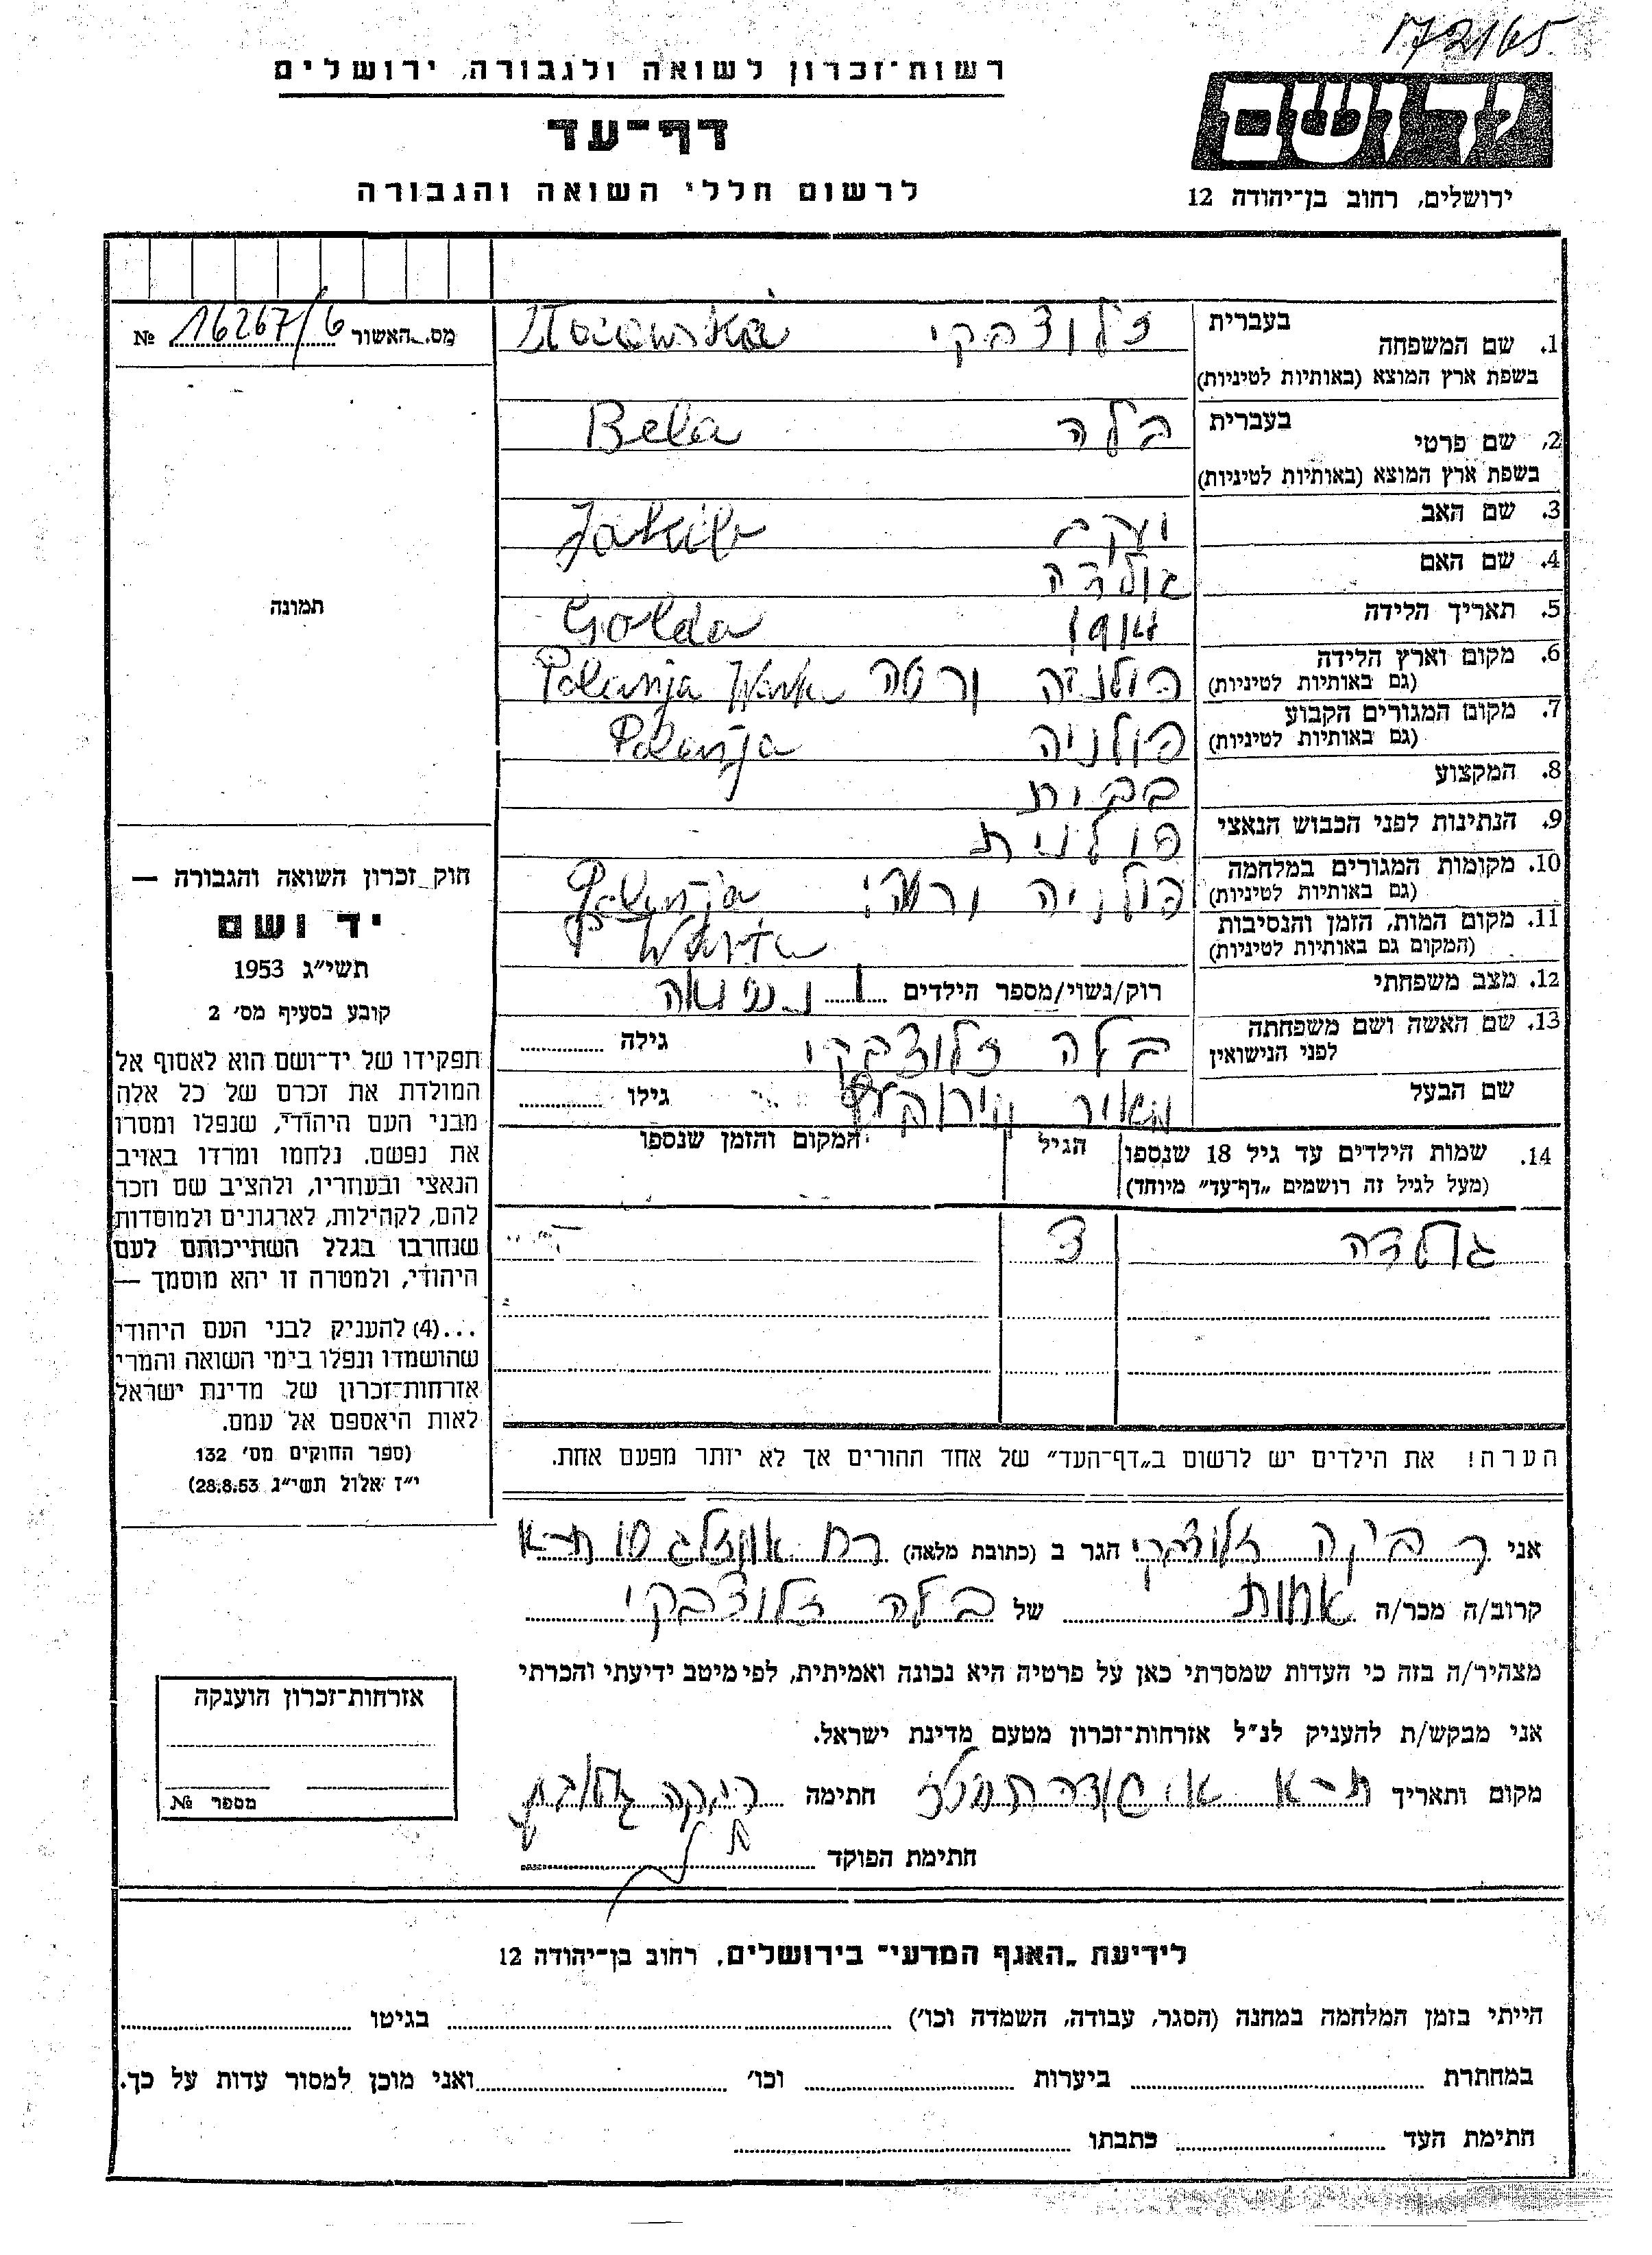 172/65
רשות־זכרון לשואה ולגבורה, ירושלים
דף־עד
לרשום חללי השואה והגבורה
יד ושם
ירושלים, רחוב בן־יהודה 12
מס. האשור 16267/6 №
תמונה
חוק זכרון השואה והגבורה —
יד ושם
תשי״ג 1953
קובע בסעיף מס׳ 2
תפקידו של יד־ושם הוא לאסוף אל
המולדת את זכרם של כל אלה
מבני העם היהודי, שנפלו ומסרו
את נפשם, נלחמו ומרדו באויב
הנאצי ובעוזריו, ולהציב שם וזכר
להם, לקהילות, לארגונים ולמוסדות
שנחרבו בגלל השתייכותם לעם
היהודי, ולמטרה זו יהא מוסמך —
...(4) להעניק לבני העם היהודי
שהושמדו ונפלו בימי השואה והמרי
אזרחות־זכרון של מדינת ישראל
לאות היאספם אל עמם.
(ספר החוקים מס׳ 132
י״ז אלול תשי״ג 28.8.53)
1. שם המשפחה בעברית זלוצבקי
בשפת ארץ המוצא (באותיות לטיניות)
2. שם פרטי בעברית בלה Bela
בשפת ארץ המוצא (באותיות לטיניות)
3. שם האב יעקב Jakób
4. שם האם גולדה
5. תאריך הלידה Golda
6. מקום וארץ הלידה פולניה ורטה Polanja
(גם באותיות לטיניות)
7. מקום המגורים הקבוע פולניה Polanja
(גם באותיות לטיניות)
8. המקצוע בבית
9. הנתינות לפני הכבוש הנאצי פולנית
10. מקומות המגורים במלחמה פולניה Polanja
(גם באותיות לטיניות)
11. מקום המות, הזמן והנסיבות Warta
(המקום גם באותיות לטיניות)
12. מצב משפחתי רוק/נשוי/מספר הילדים 1 נשואה
13. שם האשה ושם משפחתה בלה זלוצבקי גילה
לפני הנישואין
שם הבעל מאיר גילו
14. שמות הילדים עד גיל 18 שנספו הגיל המקום והזמן שנספו
(מעל לגיל זה רושמים „דף־עד״ מיוחד)
גולדה 3
הערה! את הילדים יש לרשום ב„דף־העד״ של אחד ההורים אך לא יותר מפעם אחת.
אני רביקה זלוצבקי הגר ב (כתובת מלאה) רח ת-א
קרוב/ה מכר/ה אחות של בלה זלוצבקי
מצהיר/ה בזה כי העדות שמסרתי כאן על פרטיה היא נכונה ואמיתית, לפי מיטב ידיעתי והכרתי
אני מבקש/ת להעניק לנ״ל אזרחות־זכרון מטעם מדינת ישראל.
מקום ותאריך ת-א חתימה רבקה
חתימת הפוקד
אזרחות־זכרון הוענקה
מספר №
לידיעת „האגף המדעי״ בירושלים, רחוב בן־יהודה 12
הייתי בזמן המלחמה במחנה (הסגר, עבודה, השמדה וכו׳) בגיטו
במחתרת ביערות וכו׳ ואני מוכן למסור עדות על כך.
חתימת העד כתבתו